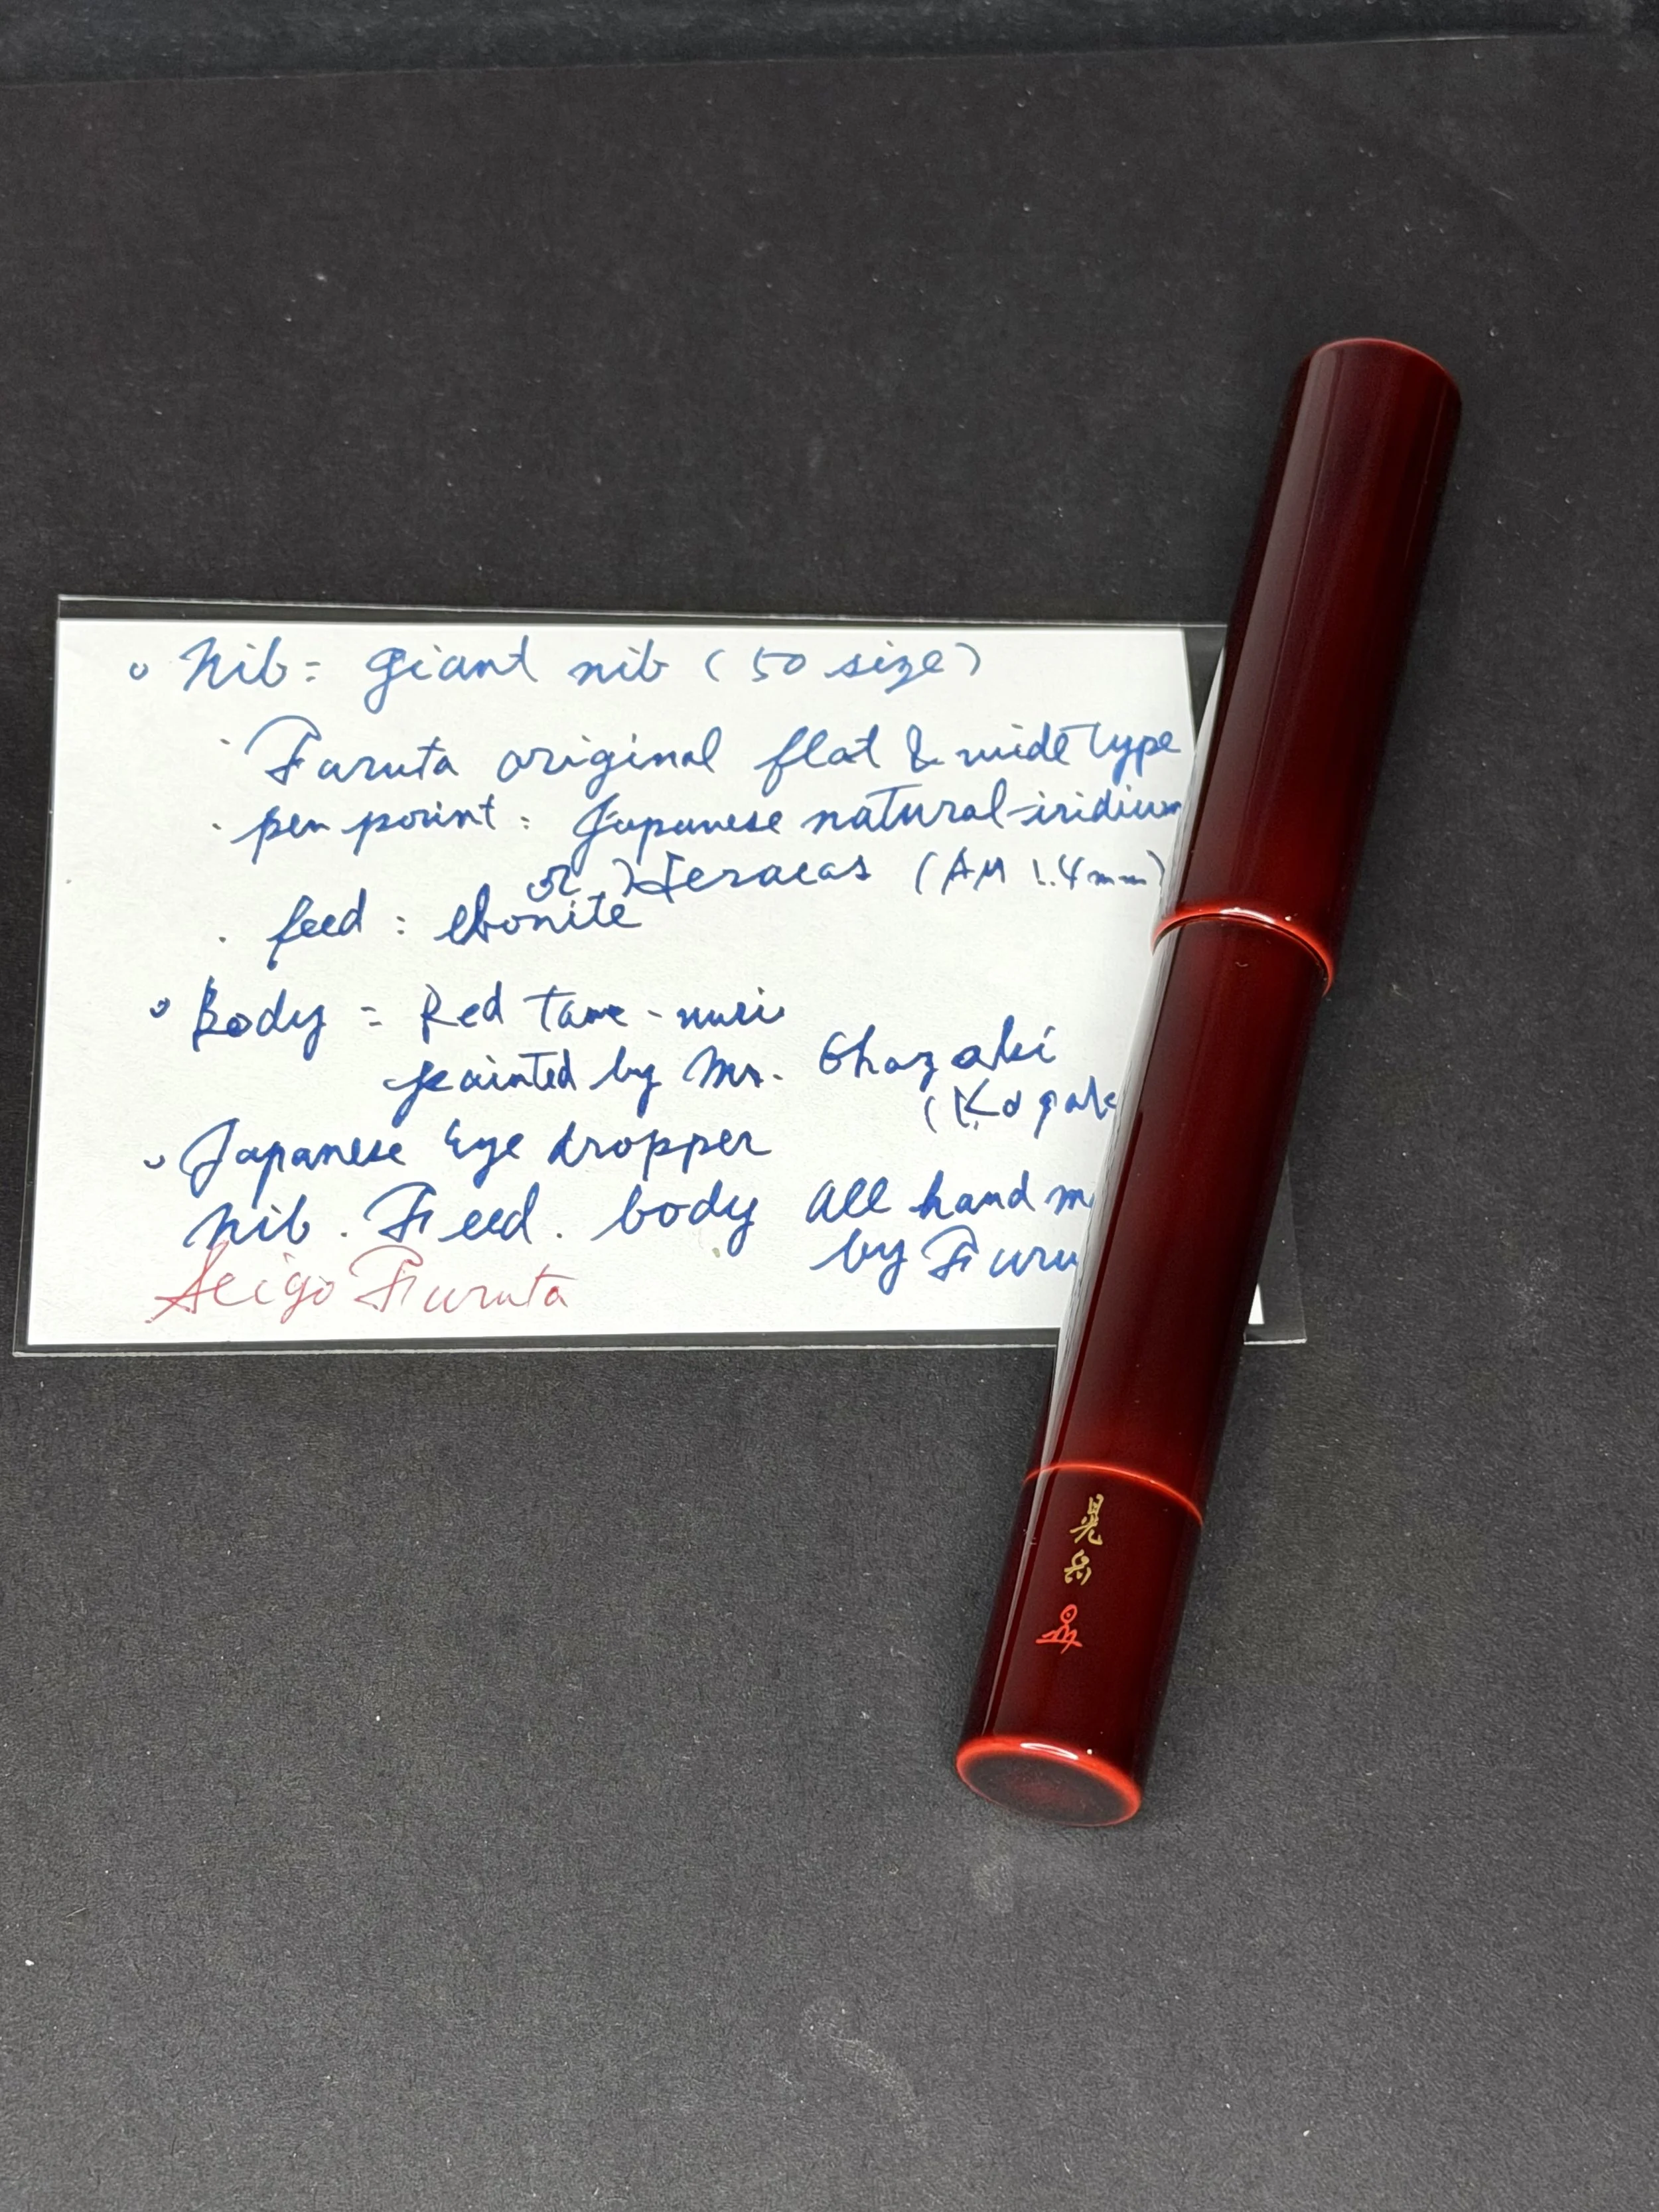 Nib = giant nib (50 size)
· Furuta original flat & wide type
· pen point : Japanese natural-iridium
or Heraeas (AM 1.4mm)
· feed : ebonite
Body = Red tame-nuri
painted by Mr. Ohazaki
Japanese Eye dropper
Nib. Feed. body all hand m
by Furu
Seigo Furuta
晃岳